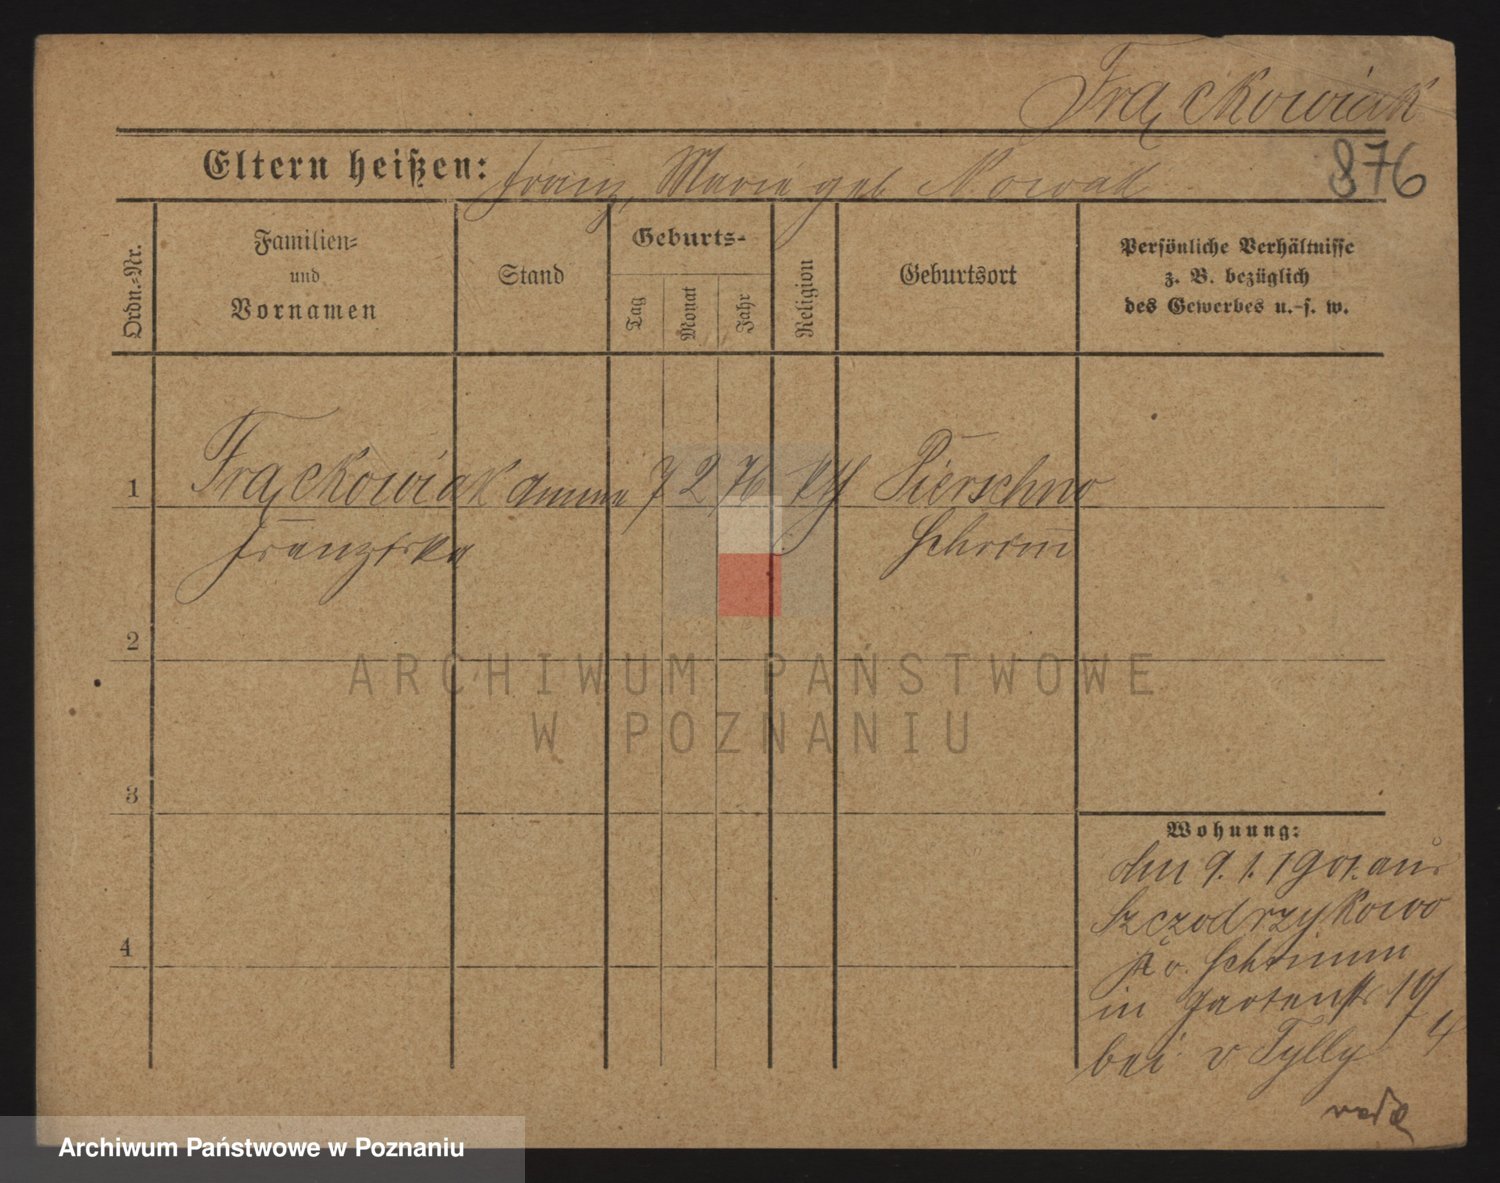 Frąckowiak
876
Eltern heißen: Franz, Marie geb Nowak
Ordn.-Nr.
Familien-
und
Vornamen
Stand
Geburts-
Tag
Monat
Jahr
Religion
Geburtsort
Persönliche Verhältnisse
z. B. bezüglich
des Gewerbes u. s. w.
1 Frąckowiak Amme 7 2 76 kth Pierschno
Franziska Schrimm
2
3
4
Wohnung:
den 9. 1. 1901. aus
Szczodrzykowo
Kr. Schrimm
in Gartenstr 19
bei v Tylly 4
ARCHIWUM PAŃSTWOWE
W POZNANIU
Archiwum Państwowe w Poznaniu